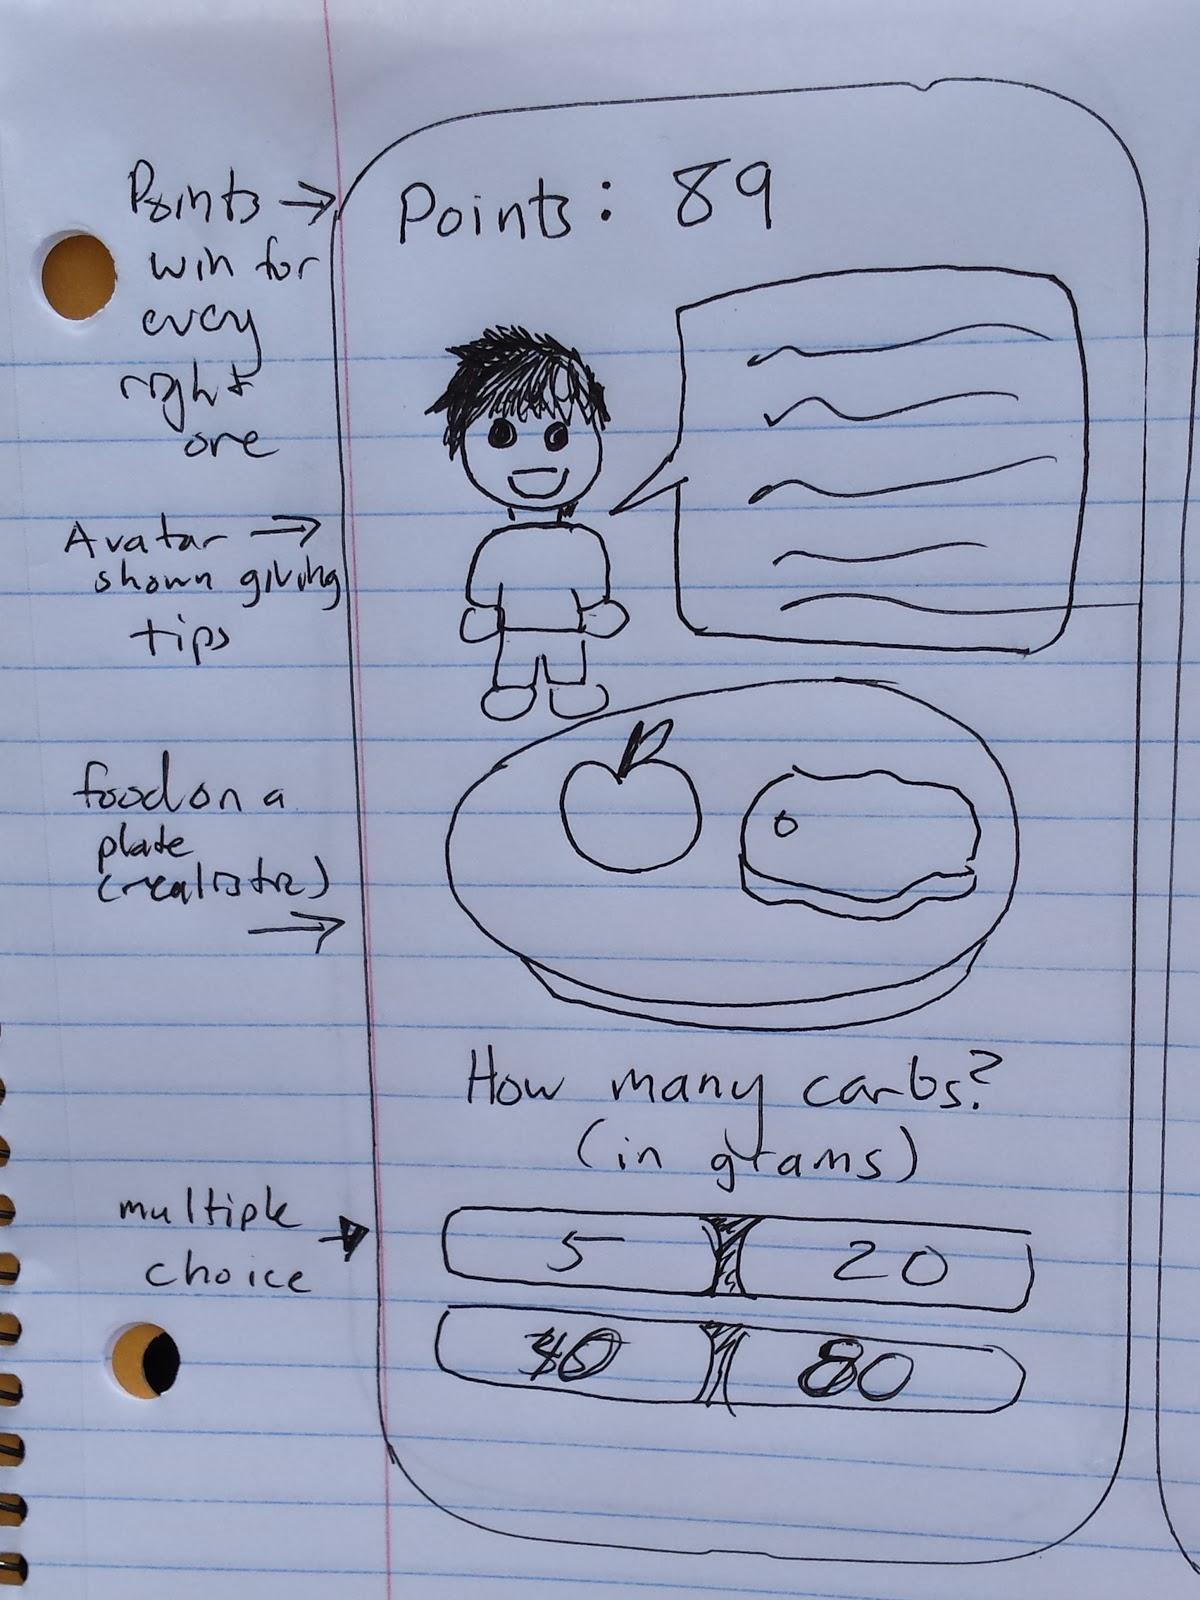 Points →
win for
every
right
one
Avatar →
shown giving
tips
food on a
plate
(realistic)
→
multiple
choice
Points: 89
How many carbs?
(in grams)
5 20
80